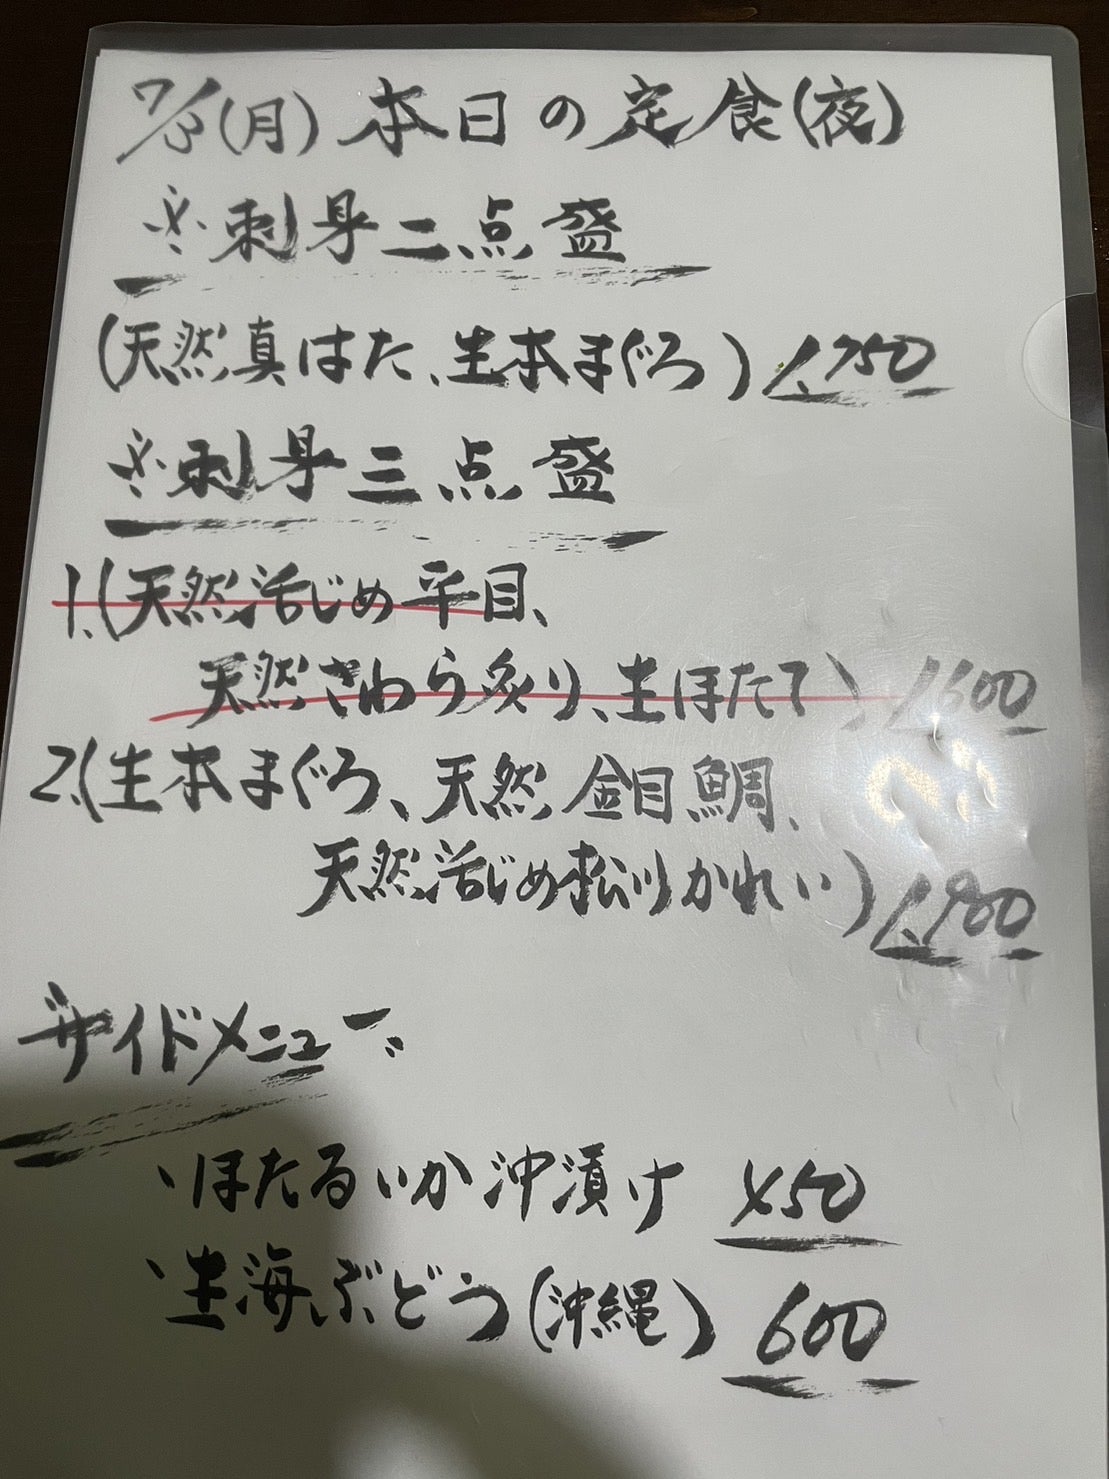 7/3(月) 本日の定食(夜)
※刺身二点盛
(天然真はた、生本まぐろ) 1,750
※刺身三点盛
1、(天然活じめ平目、
天然さわら炙り、生ほたて) 1,600
2、(生本まぐろ、天然金目鯛、
天然活じめ松川かれい) 1,900
サイドメニュー
・ほたるいか沖漬け 450
・生海ぶどう(沖縄) 600